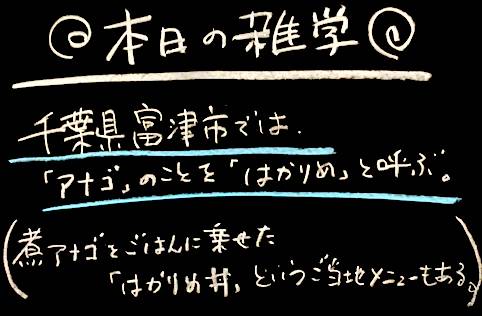 @本日の雑学@
千葉県富津市では、
「アナゴ」のことを「はかりめ」と呼ぶ。
(煮アナゴをごはんに乗せた
「はかりめ丼」というご当地メニューもある。)